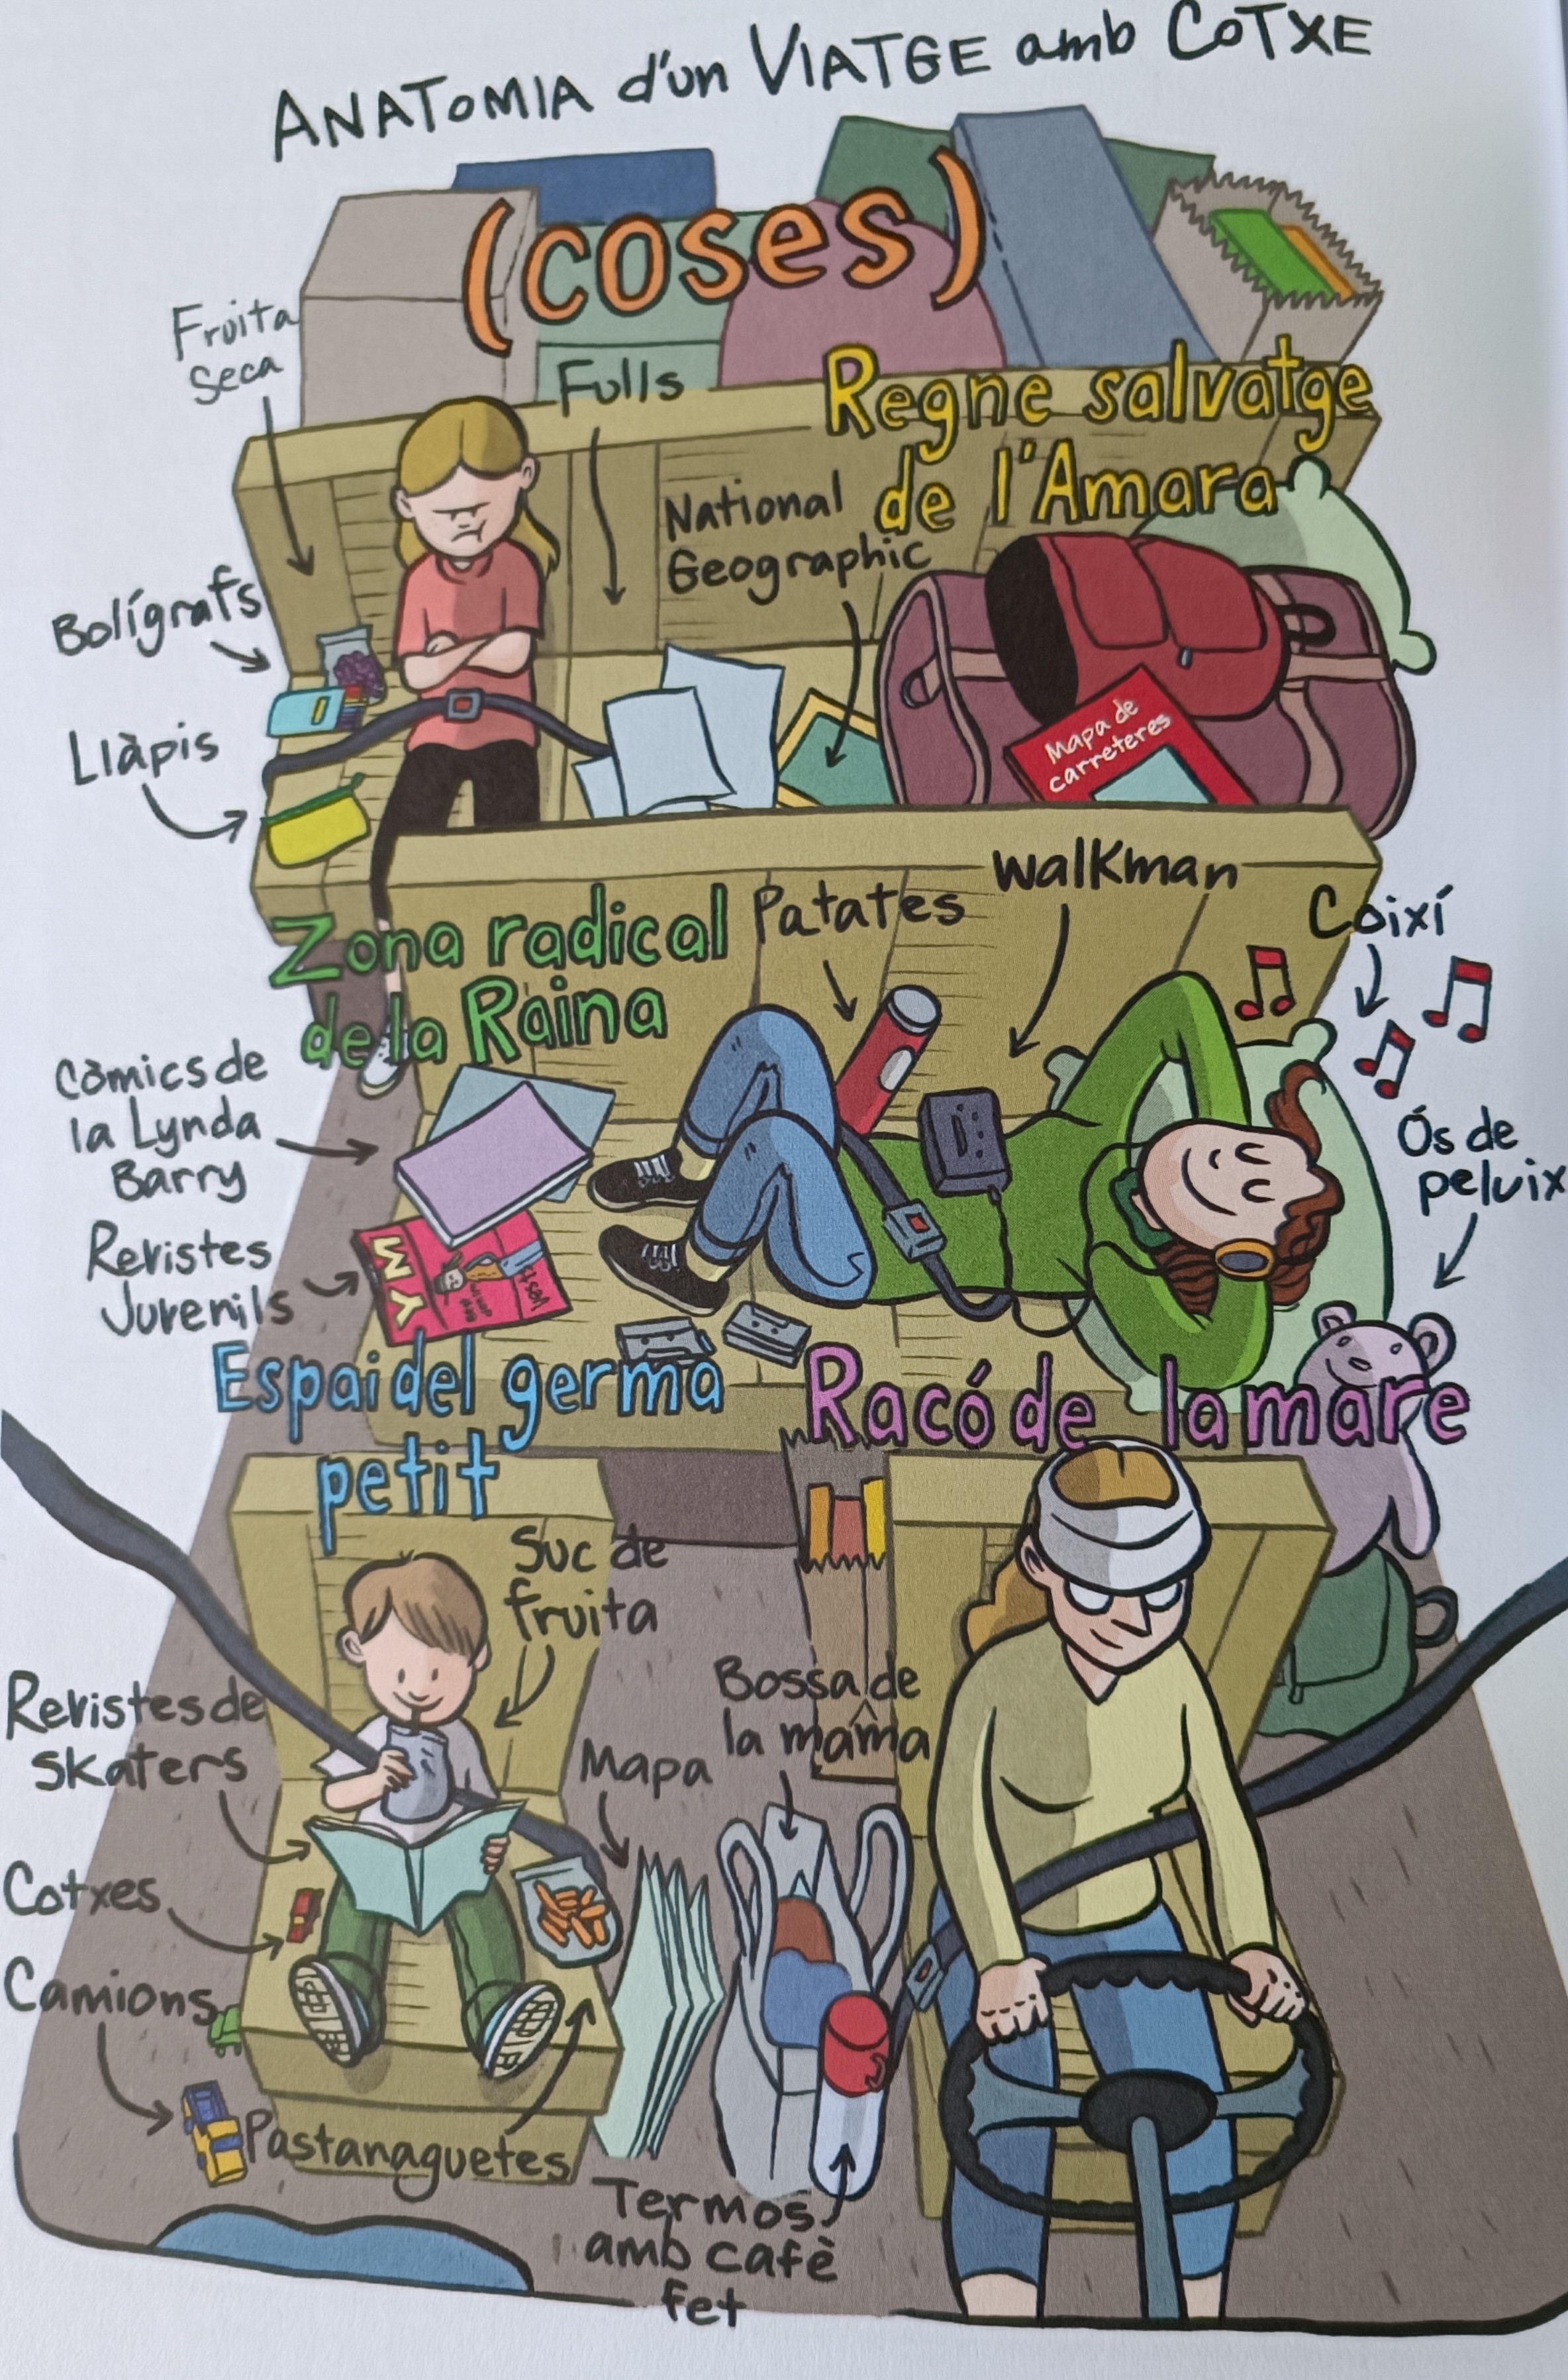 ANATOMIA d'un VIATGE amb COTXE
(coses)
Fruita
seca
Fulls
Regne salvatge
de l'Amara
National
Geographic
Bolígrafs
Llàpis
Mapa de
carreteres
Zona radical
de la Raina
Patates
Walkman
Coixí
Còmics de
la Lynda
Barry
Revistes
Juvenils
YM
Ós de
peluix
Espai del germà
petit
Racó de la mare
Suc de
fruita
Revistes de
skaters
Mapa
Bossa de
la mama
Cotxes
Camions
Pastanaguetes
Termos
amb cafè
fet